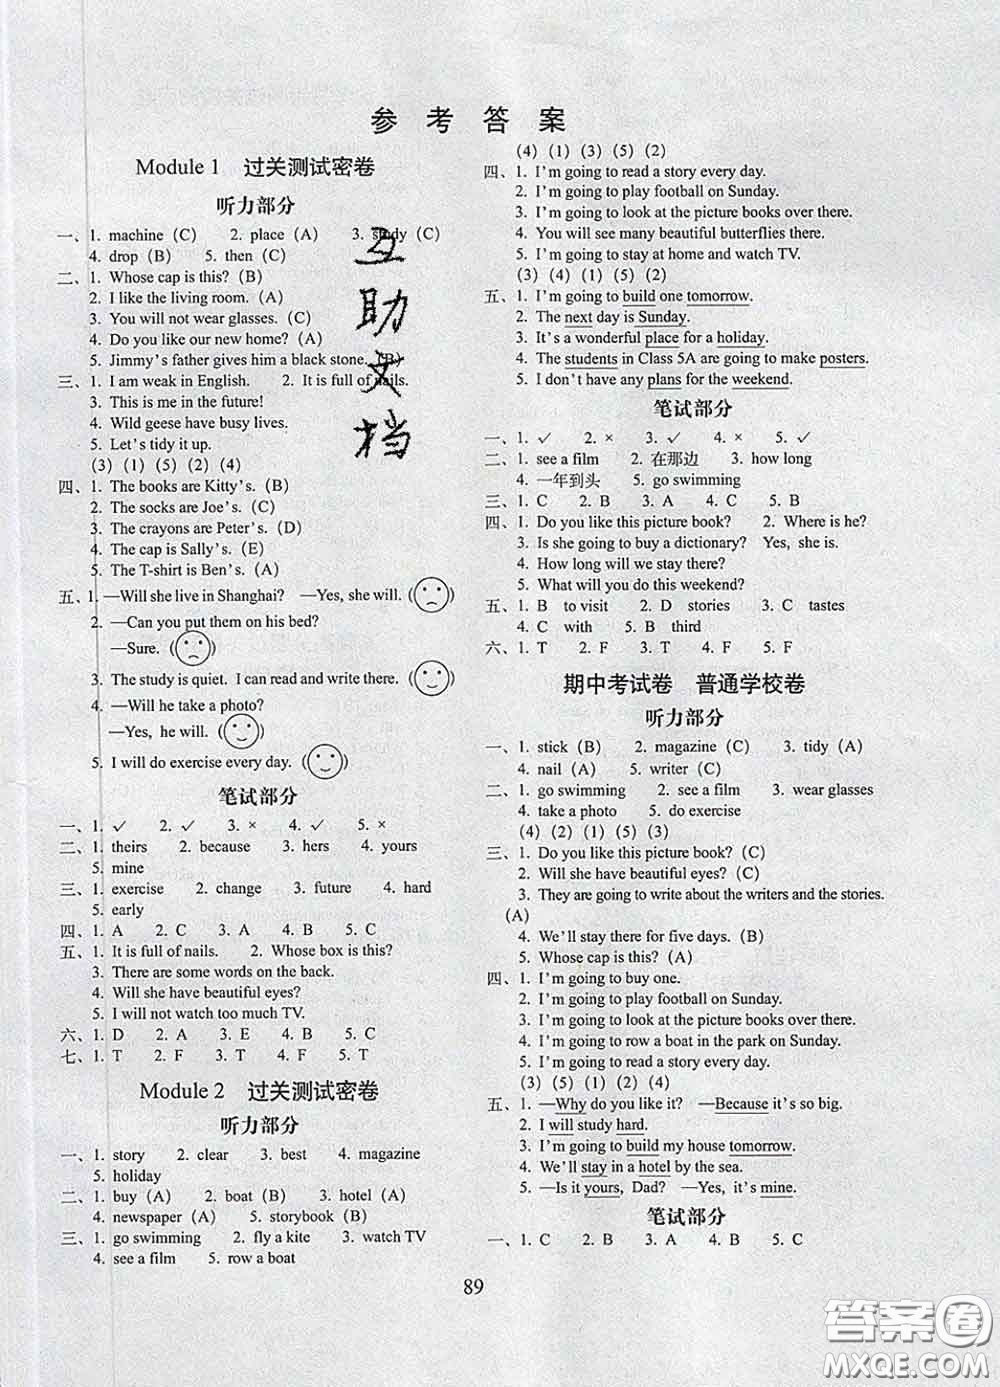 参考答案
Module 1 过关测试密卷
听力部分
一、1. machine (C) 2. place (A) 3. study (C)
4. drop (B) 5. then (C)
二、1. Whose cap is this? (B)
2. I like the living room. (A)
3. You will not wear glasses. (C)
4. Do you like our new home? (A)
5. Jimmy's father gives him a black stone. (B)
三、1. I am weak in English. 2. It is full of nails.
3. This is me in the future!
4. Wild geese have busy lives.
5. Let's tidy it up.
(3) (1) (5) (2) (4)
四、1. The books are Kitty's. (B)
2. The socks are Joe's. (C)
3. The crayons are Peter's. (D)
4. The cap is Sally's. (E)
5. The T-shirt is Ben's. (A)
五、1. —Will she live in Shanghai? —Yes, she will. ( )
2. —Can you put them on his bed?
—Sure. ( )
3. The study is quiet. I can read and write there. ( )
4. —Will he take a photo?
—Yes, he will. ( )
5. I will do exercise every day. ( )
笔试部分
一、1. ✓ 2. ✓ 3. × 4. ✓ 5. ×
二、1. theirs 2. because 3. hers 4. yours
5. mine
三、1. exercise 2. change 3. future 4. hard
5. early
四、1. A 2. C 3. A 4. B 5. C
五、1. It is full of nails. 2. Whose box is this?
3. There are some words on the back.
4. Will she have beautiful eyes?
5. I will not watch too much TV.
六、1. D 2. A 3. E 4. B 5. C
七、1. T 2. F 3. T 4. F 5. T
Module 2 过关测试密卷
听力部分
一、1. story 2. clear 3. best 4. magazine
5. holiday
二、1. buy (A) 2. boat (B) 3. hotel (A)
4. newspaper (A) 5. storybook (B)
三、1. go swimming 2. fly a kite 3. watch TV
4. see a film 5. row a boat
(4) (1) (3) (5) (2)
四、1. I'm going to read a story every day.
2. I'm going to play football on Sunday.
3. I'm going to look at the picture books over there.
4. You will see many beautiful butterflies there.
5. I'm going to stay at home and watch TV.
(3) (4) (1) (5) (2)
五、1. I'm going to build one tomorrow.
2. The next day is Sunday.
3. It's a wonderful place for a holiday.
4. The students in Class 5A are going to make posters.
5. I don't have any plans for the weekend.
笔试部分
一、1. ✓ 2. × 3. ✓ 4. × 5. ✓
二、1. see a film 2. 在那边 3. how long
4. 一年到头 5. go swimming
三、1. C 2. B 3. A 4. C 5. B
四、1. Do you like this picture book? 2. Where is he?
3. Is she going to buy a dictionary? Yes, she is.
4. How long will we stay there?
5. What will you do this weekend?
五、1. B to visit 2. D stories 3. C tastes
4. C with 5. B third
六、1. T 2. F 3. T 4. F 5. F
期中考试卷 普通学校卷
听力部分
一、1. stick (B) 2. magazine (C) 3. tidy (A)
4. nail (A) 5. writer (C)
二、1. go swimming 2. see a film 3. wear glasses
4. take a photo 5. do exercise
(4) (2) (1) (5) (3)
三、1. Do you like this picture book? (C)
2. Will she have beautiful eyes? (C)
3. They are going to write about the writers and the stories.
(A)
4. We'll stay there for five days. (B)
5. Whose cap is this? (A)
四、1. I'm going to buy one.
2. I'm going to play football on Sunday.
3. I'm going to look at the picture books over there.
4. I'm going to row a boat in the park on Sunday.
5. I'm going to read a story every day.
(3) (5) (1) (2) (4)
五、1. —Why do you like it? —Because it's so big.
2. I will study hard.
3. I'm going to build my house tomorrow.
4. We'll stay in a hotel by the sea.
5. —Is it yours, Dad? —Yes, it's mine.
笔试部分
一、1. C 2. B 3. A 4. B 5. C
89
互助文档
答案圈
MXQE.COM